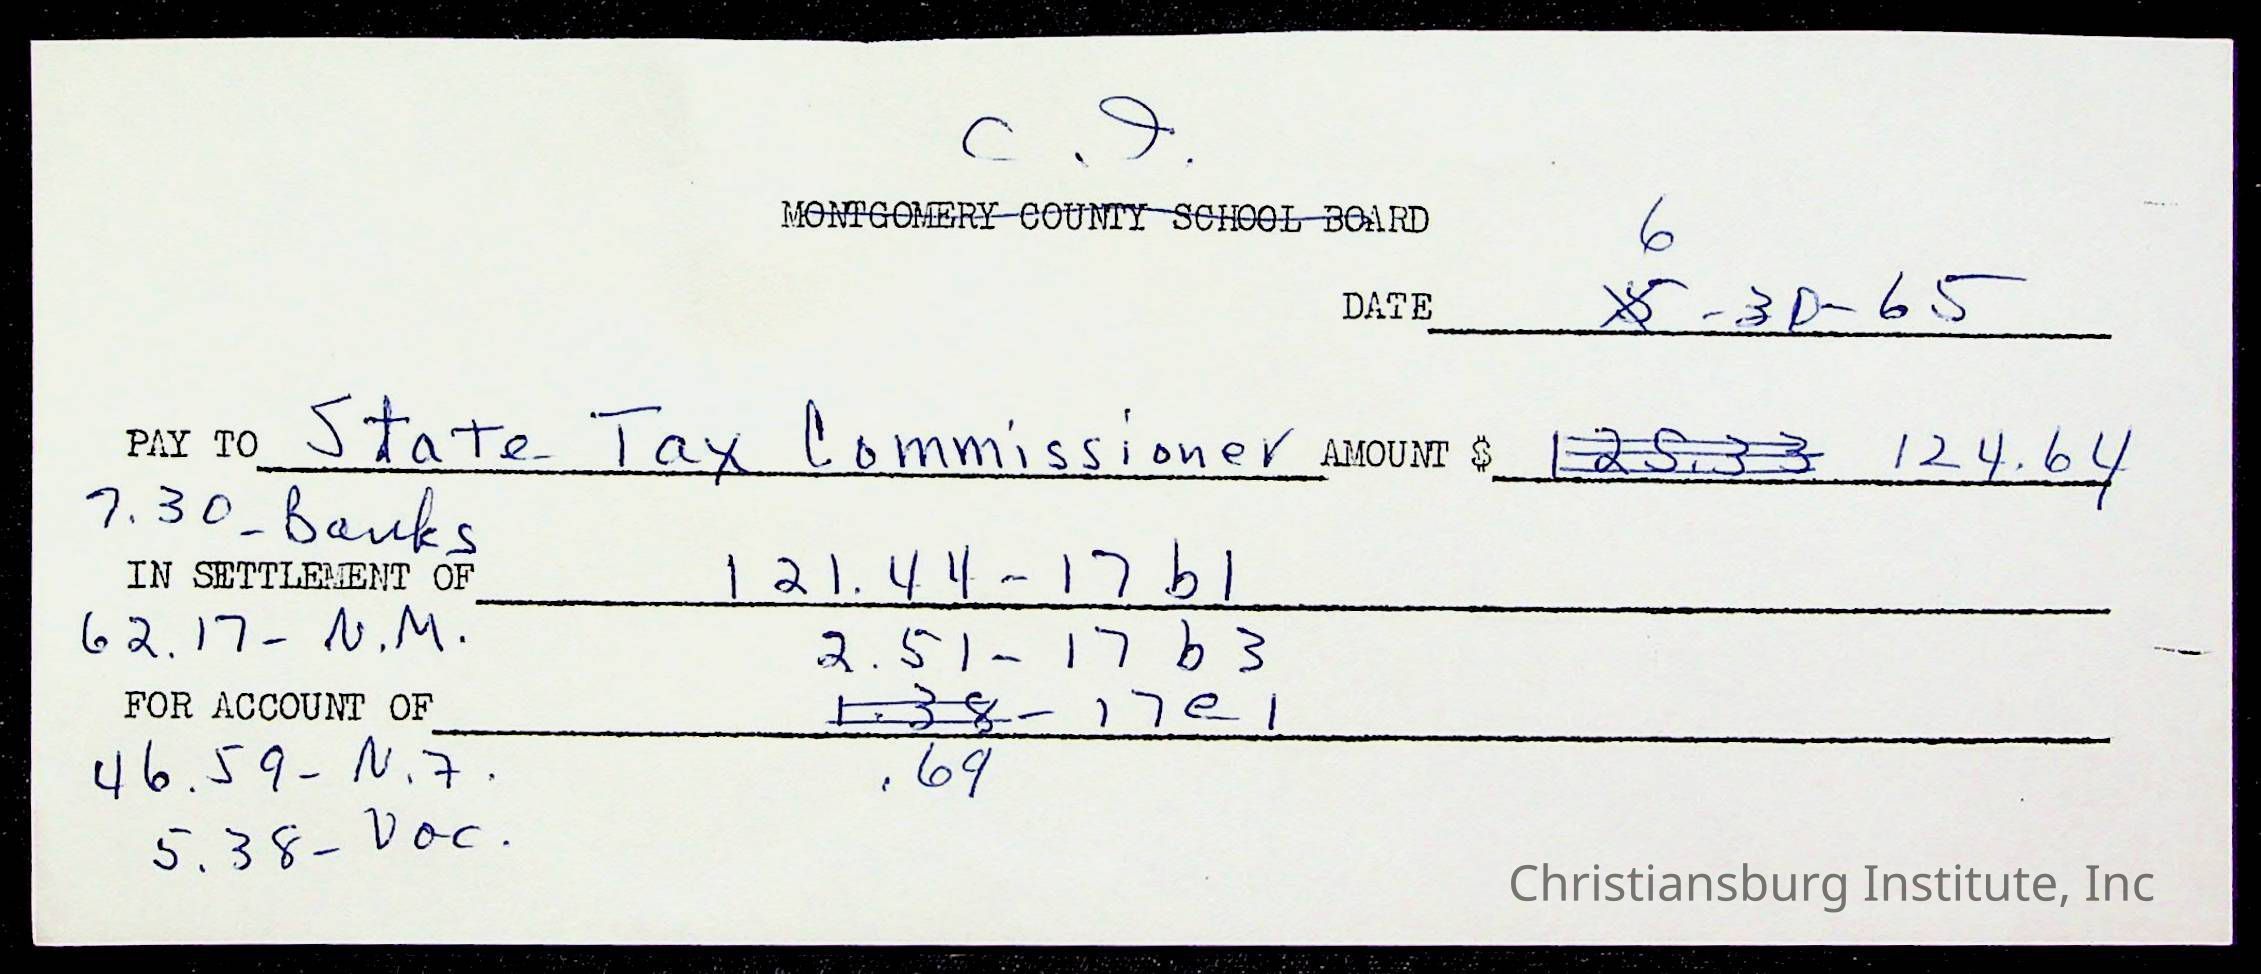 C.I.
MONTGOMERY COUNTY SCHOOL BOARD
6
DATE 5-30-65
PAY TO State Tax Commissioner AMOUNT $ 125.33 124.64
7.30-Banks
IN SETTLEMENT OF 121.44-17b1
62.17-N.M. 2.51-17b3
FOR ACCOUNT OF 1.38-17e1
46.59-N.7. .69
5.38-Voc.
Christiansburg Institute, Inc